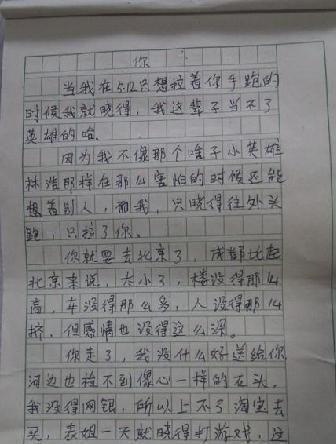 你
当我在5.12只想拉着你手跑的
时候我就晓得，我这辈子当不了
英雄的哈。
因为我不像那个啥子小英雄
林浩那样在那么害怕的时候还能
想着别人，而我，只晓得往外头
跑，只拉了你。
你就要去北京了，成都比起
北京来说，太小了，楼没得那么
高，车没得那么多，人没得那么
挤，但感情也没得这么深。
你走了，我没什么好送给你
河边也捡不到像心一样的石头。
我没得网银，所以上不了淘宝去
买，表姐一天就晓得打游戏，这